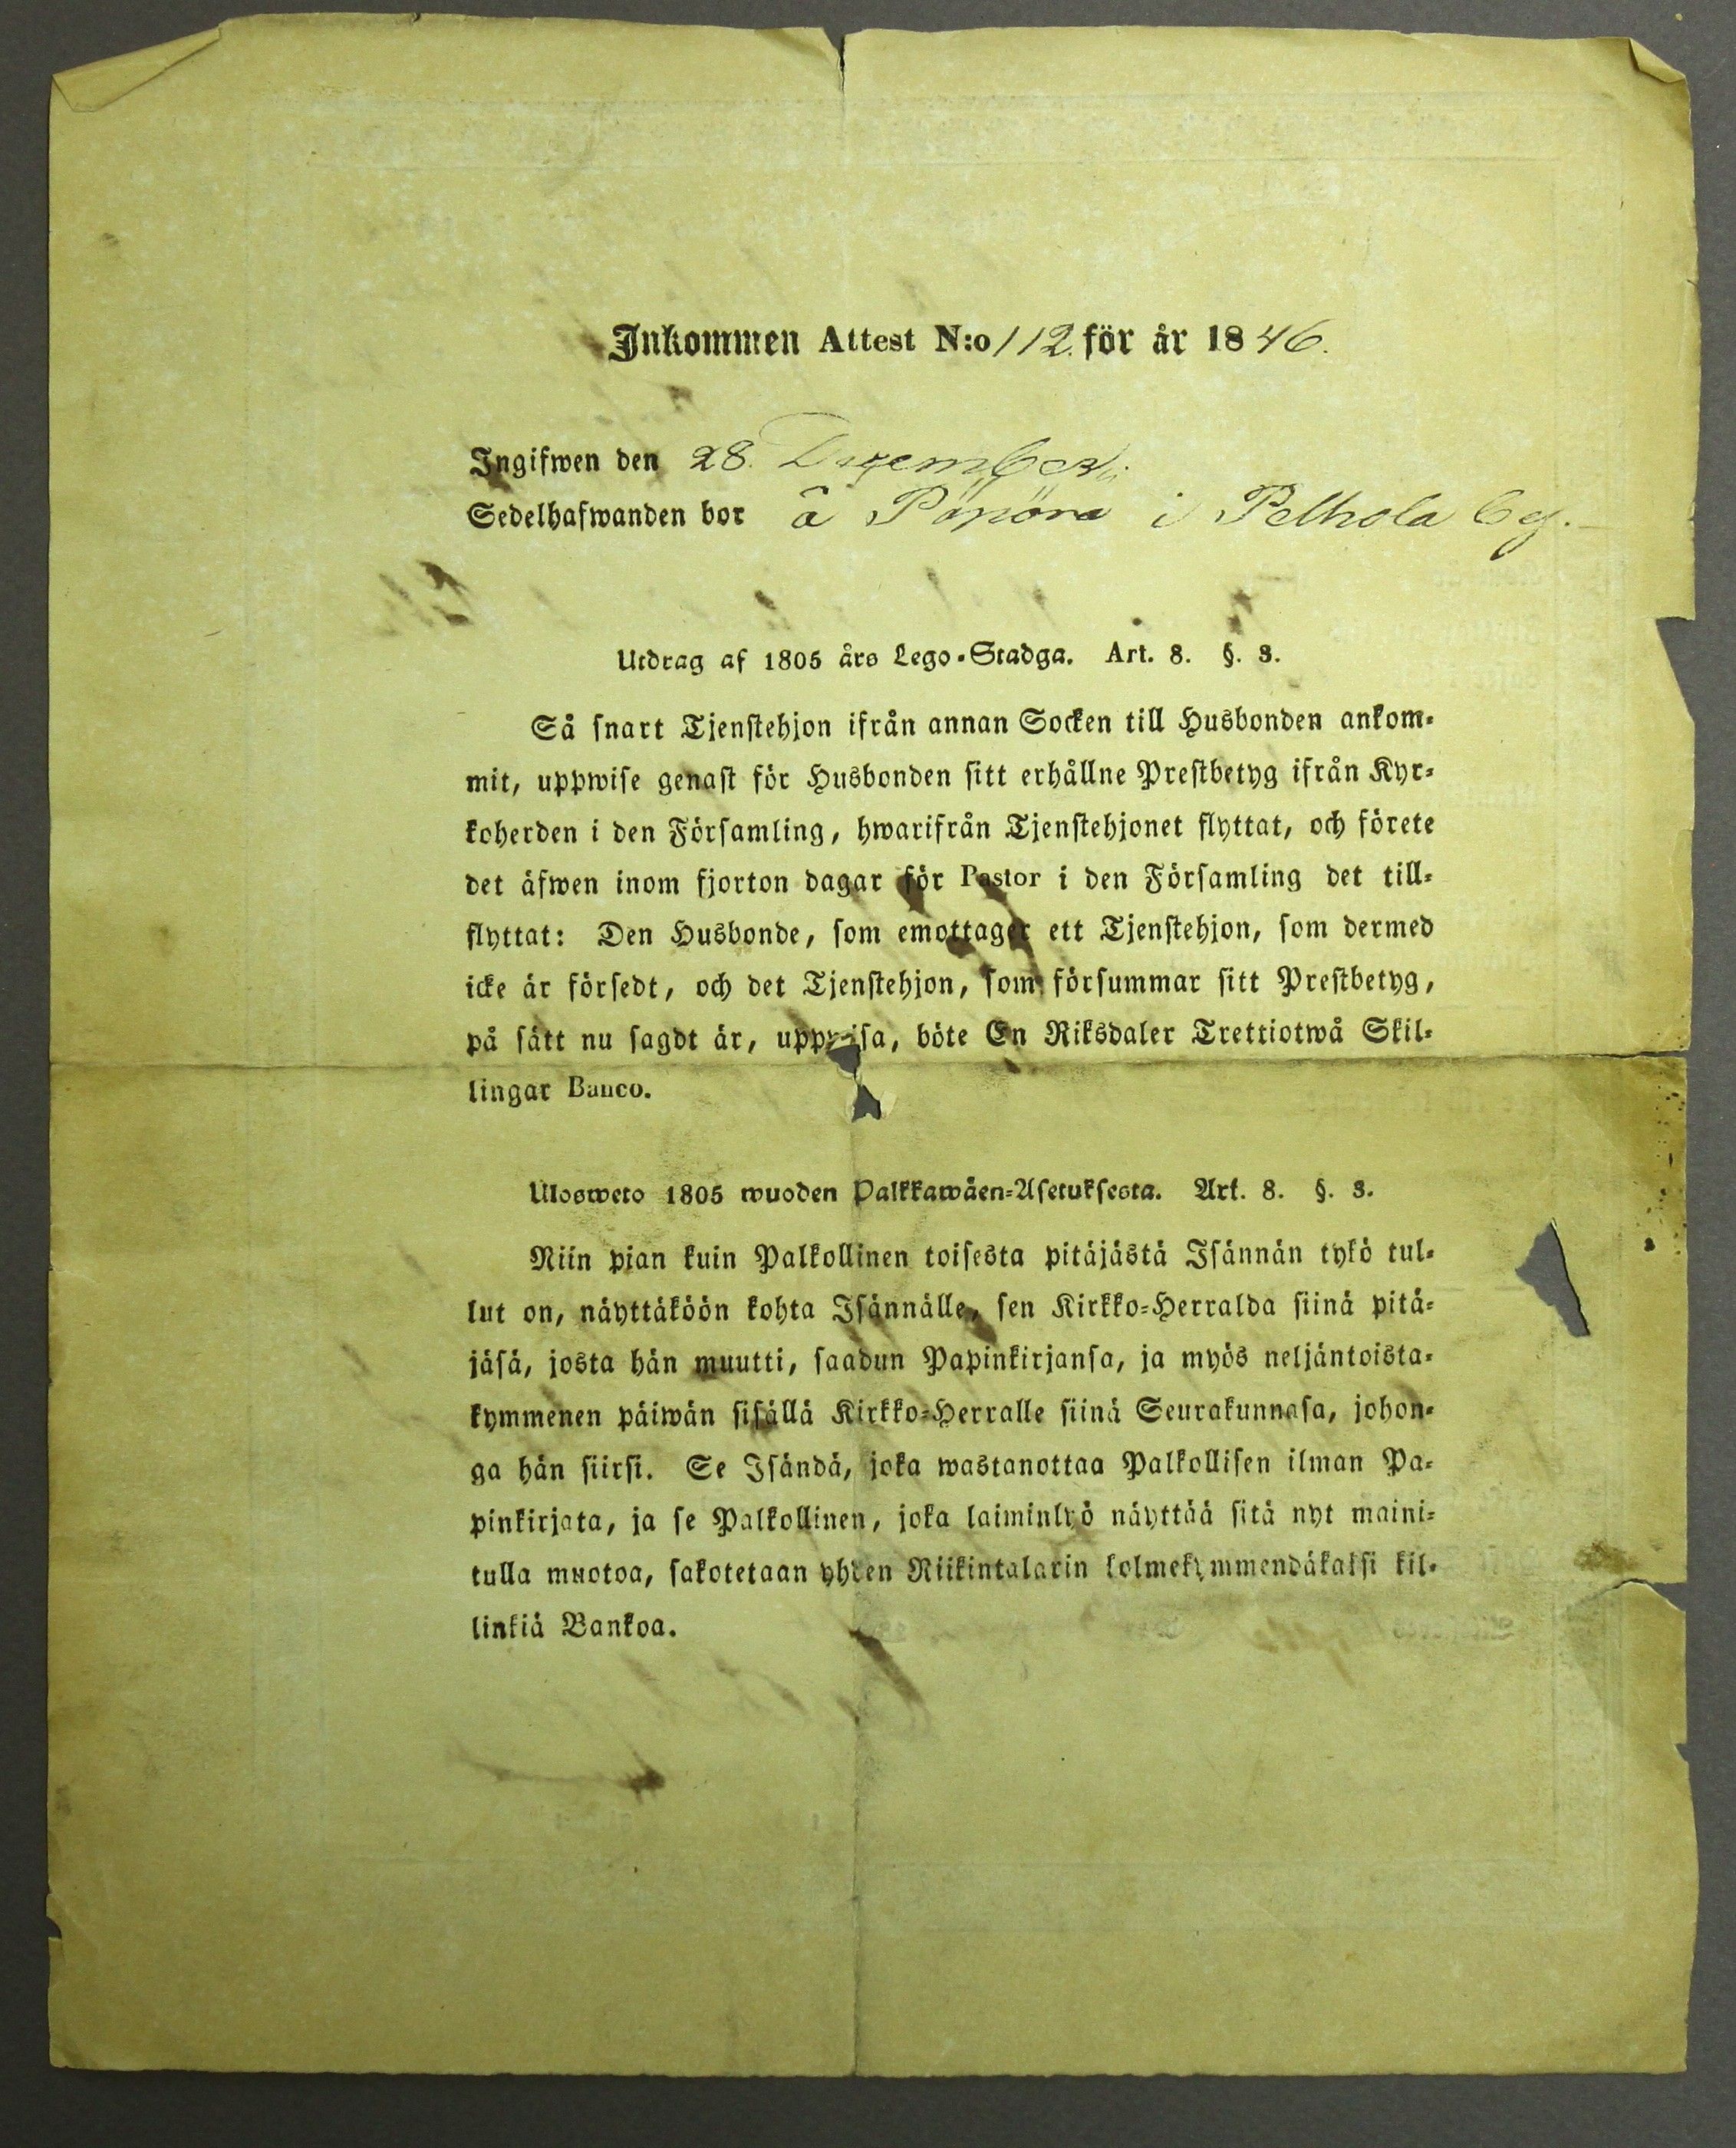 Inkommen Attest N:o 112. för år 1846.
Ingifwen den 28. December
Sedelhafwanden bor å i Pelhola by.
Utdrag af 1805 års Lego-Stadga. Art. 8. §. 3.
Så snart Tjenstehjon ifrån annan Socken till Husbonden ankom-
mit, uppwise genast för Husbonden sitt erhållne Prestbetyg ifrån Kyr-
koherden i den Församling, hwarifrån Tjenstehjonet flyttat, och förete
det äfwen inom fjorton dagar för Pastor i den Församling det till-
flyttat: Den Husbonde, som emottager ett Tjenstehjon, som dermed
icke är försedt, och det Tjenstehjon, som försummar sitt Prestbetyg,
på sätt nu sagdt är, uppwisa, böte En Riksdaler Trettiotwå Skil-
lingar Banco.
Ulosweto 1805 wuoden Palkkawäen-Asetuksesta. Art. 8. §. 3.
Niin pian kuin Palkollinen toisesta pitäjästä Isännän tykö tul-
lut on, näyttäköön kohta Isännälle, sen Kirkko-Herralda siinä pitä-
jäsä, josta hän muutti, saadun Papinkirjansa, ja myös neljäntoista-
kymmenen päiwän sisällä Kirkko-Herralle siinä Seurakunnasa, johon-
ga hän siirsi. Se Isändä, joka wastanottaa Palkollisen ilman Pa-
pinkirjata, ja se Palkollinen, joka laiminlyö näyttää sitä nyt maini-
tulla muotoa, sakotetaan yhden Riikintalarin kolmekymmendäkaksi kil-
linkiä Bankoa.